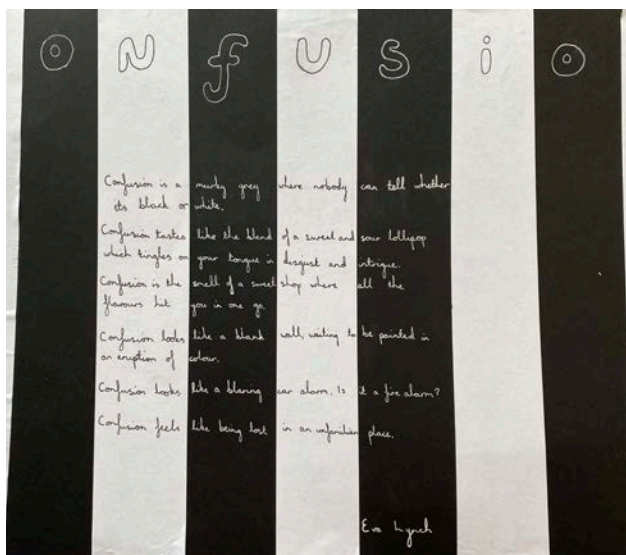 onfusio
Confusion is a murky grey where nobody can tell whether
its black or white.
Confusion tastes like the blend of a sweet and sour lollypop
which tingles on your tongue in disgust and intrigue.
Confusion is the smell of a sweet shop where all the
flavours hit you in one go
Confusion looks like a blank wall, waiting to be painted in
an eruption of colour.
Confusion looks like a blaring car alarm. Is it a fire alarm?
Confusion feels like being lost in an unfamiliar place.
Eva Lynch